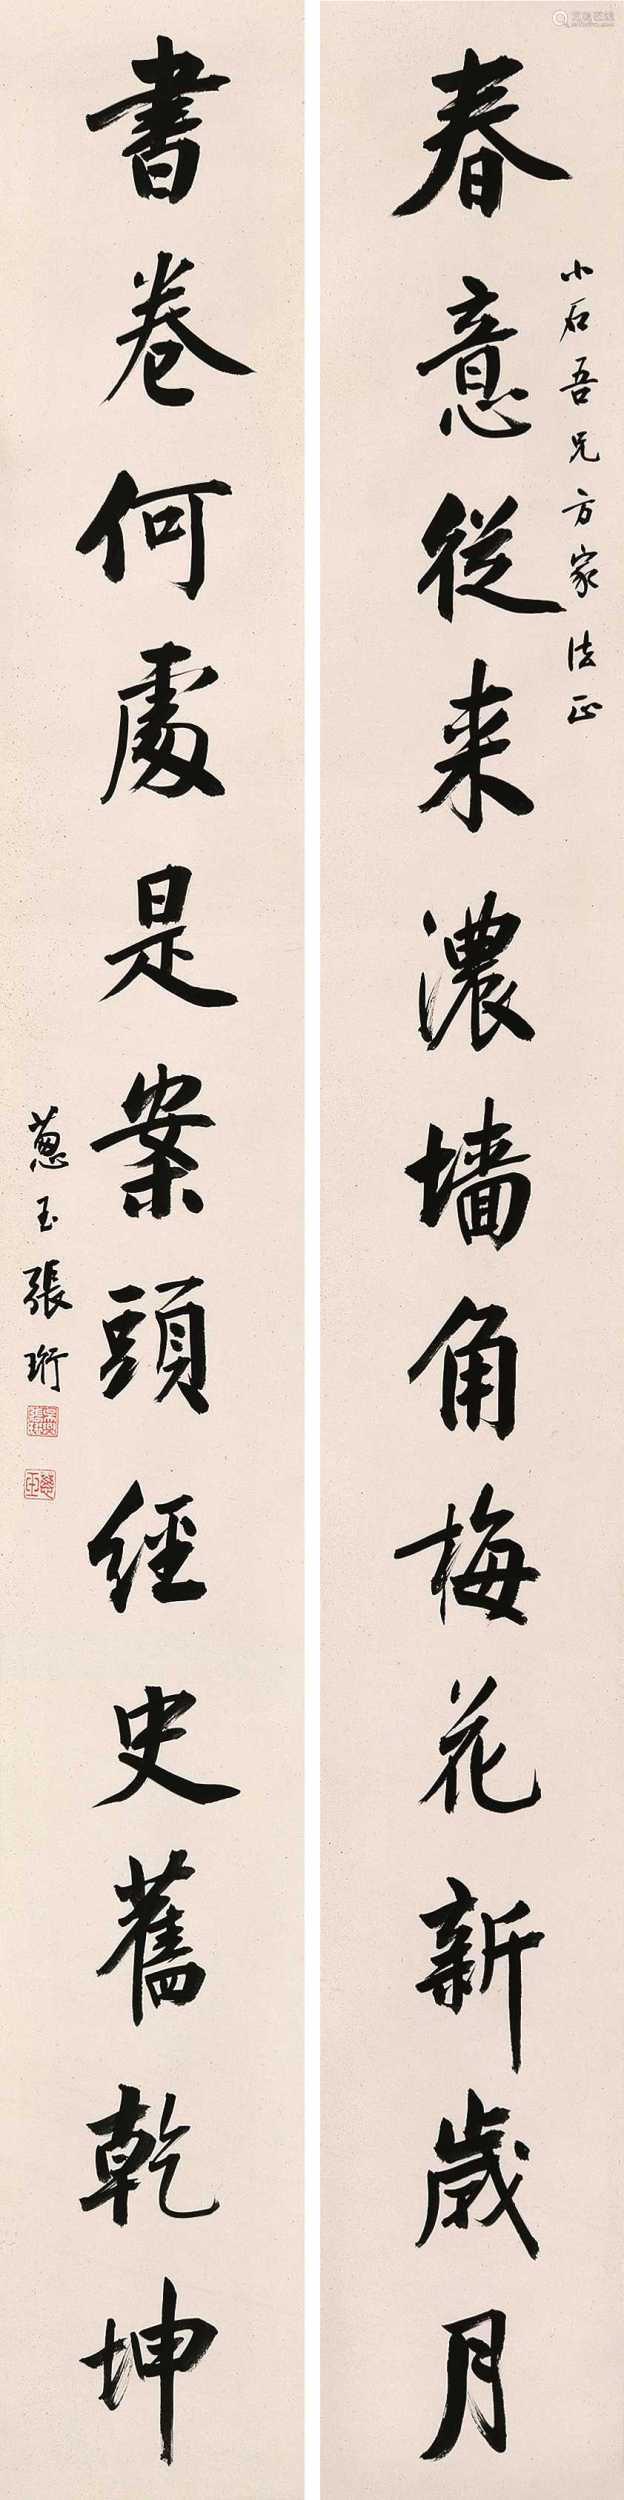 春意從来濃墙角梅花新歲月
小石吾兄方家法正
書卷何處是案頭經史舊乾坤
蔥玉張珩